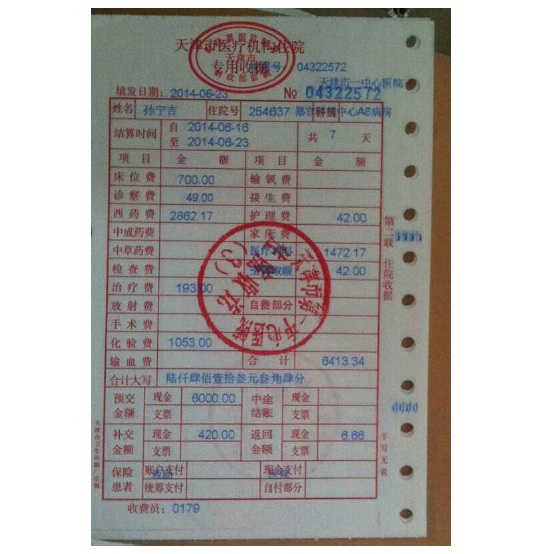 天津市医疗机构住院
专用收据
04322572
天津市一中心医院
填发日期: 2014-06-23 № 04322572
姓名 孙宁吉 住院号 254637 器官移植中心A8病房
结算时间 自 2014-06-16 至 2014-06-23 共 7 天
项目 金额 项目 金额
床位费 700.00 输氧费
诊察费 49.00 接生费
西药费 2862.17 护理费 42.00
中成药费 家床费
中草药费 1472.17
检查费 42.00
治疗费 193.00
放射费 自费部分
手术费
化验费 1053.00
输血费 合计 6413.34
合计大写 陆仟肆佰壹拾叁元叁角肆分
预交金额 现金 6000.00 中途结账 现金
支票 支票
补交金额 现金 420.00 返回金额 现金 6.66
支票 支票
保险患者 账户支付 现金支付
统筹支付 自付部分
收费员: 0179
第二联 住院收据
手写无效